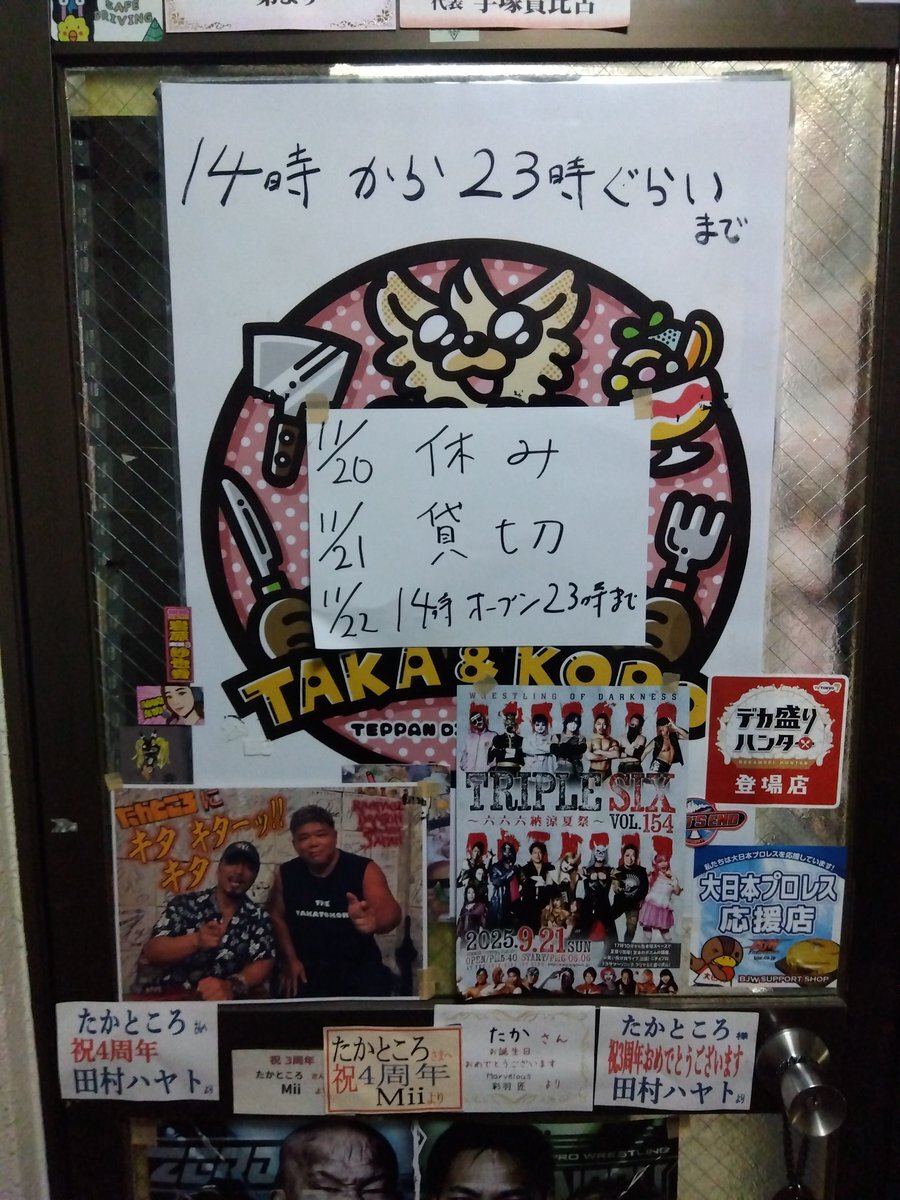 SAFE
DRIVING
代表 手塚貴比古
14時から23時ぐらい
まで
11/20 休み
11/21 貸切
11/22 14時オープン23時まで
TAKA & KORO
TEPPAN DI
WRESTLING OF DARKNESS
TRIPLE SIX
～六六六納涼夏祭～ VOL.154
2025.9.21 SUN
たかところに
キタキターッ!!
キタ
THE
TAKATOKORO
TV TOKYO
デカ盛り
ハンター
DEKAMORI HUNTER
登場店
私たちは大日本プロレスを応援しています!
大日本プロレス
応援店
BJW SUPPORT SHOP
たかところさんへ
祝4周年
田村ハヤトより
祝3周年
たかところさん
Miiより
たかところさまへ
祝4周年
Miiより
たかさん
お誕生日
おめでとうございます
Marvelous
彩羽匠より
たかところ様
祝3周年おめでとうございます
田村ハヤトより
ZERO
PRO WRESTLING